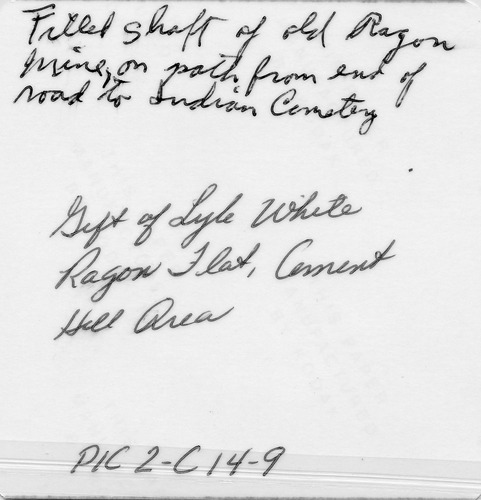 Filled shaft of old Ragon
Mine, on path from end of
road to Indian Cemetery
Gift of Lyle White
Ragon Flat, Cement
Hill Area
PIC 2-C14-9